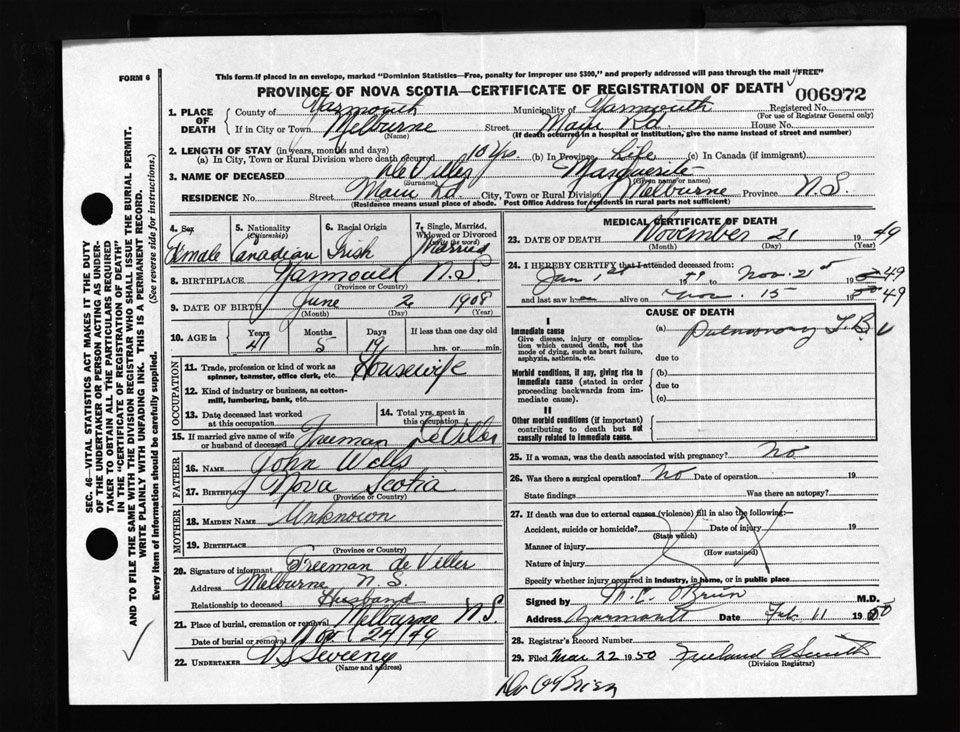 FORM 6
This form if placed in an envelope, marked "Dominion Statistics—Free, penalty for improper use $300," and properly addressed will pass through the mail "FREE"
PROVINCE OF NOVA SCOTIA—CERTIFICATE OF REGISTRATION OF DEATH
006972
1. PLACE OF DEATH
County of Yarmouth Municipality of Yarmouth Registered No.
(For use of Registrar General only)
If in City or Town Melburne Street Main Rd. House No.
(Name) (If death occurred in a hospital or institution, give the name instead of street and number)
2. LENGTH OF STAY (in years, months and days)
(a) In City, Town or Rural Division where death occurred 10 yrs. (b) In Province Life (c) In Canada (if immigrant)
3. NAME OF DECEASED De Viller Marguerite
(Surname) (Given name or names)
RESIDENCE No. Street Main Rd City, Town or Rural Division Melbourne Province N.S.
(Residence means usual place of abode. Post Office Address for residents in rural parts not sufficient)
4. Sex Female
5. Nationality (Citizenship) Canadian
6. Racial Origin Irish
7. Single, Married, Widowed or Divorced (write the word) Married
8. BIRTHPLACE Yarmouth N.S.
(Province or Country)
9. DATE OF BIRTH June 2 1908
(Month) (Day) (Year)
10. AGE in Years Months Days If less than one day old
41 5 19 hrs. or min.
OCCUPATION
11. Trade, profession or kind of work as spinner, teamster, office clerk, etc. Housewife
12. Kind of industry or business, as cotton-mill, lumbering, bank, etc.
13. Date deceased last worked at this occupation
14. Total yrs. spent in this occupation
15. If married give name of wife or husband of deceased Freeman DeViller
FATHER
16. NAME John Wells
17. BIRTHPLACE Nova Scotia
(Province or Country)
MOTHER
18. MAIDEN NAME Unknown
19. BIRTHPLACE
(Province or Country)
20. Signature of informant Freeman de Viller
Address Melburne N.S.
Relationship to deceased Husband
21. Place of burial, cremation or removal Melburne N.S.
Date of burial or removal Nov. 24/49
22. UNDERTAKER V S Sweeney
(Name and address)
MEDICAL CERTIFICATE OF DEATH
23. DATE OF DEATH November 21 1949
(Month) (Day) (Year)
24. I HEREBY CERTIFY that I attended deceased from:
Jan 1st 49 to Nov. 21st 1949
and last saw her alive on Nov. 15 1949
CAUSE OF DEATH
I
Immediate cause
Give disease, injury or complication which caused death, not the mode of dying, such as heart failure, asphyxia, asthenia, etc.
(a) Pulmonary T.B.
due to
Morbid conditions, if any, giving rise to Immediate cause (stated in order proceeding backwards from immediate cause).
(b)
due to
(c)
II
Other morbid conditions (if important) contributing to death but not causally related to immediate cause.
25. If a woman, was the death associated with pregnancy? No
26. Was there a surgical operation? No Date of operation 19
State findings Was there an autopsy?
27. If death was due to external causes (violence) fill in also the following:—
Accident, suicide or homicide? Date of injury 19
(State which)
Manner of injury
(How sustained)
Nature of injury
Specify whether injury occurred in industry, in home, or in public place
Signed by M.C. O'Brien M.D.
Address Yarmouth Date Feb. 11 1950
28. Registrar's Record Number
29. Filed Mar 22 1950 Freeland A Smith
(Division Registrar)
Dr O'Brien
SEC. 46—VITAL STATISTICS ACT MAKES IT THE DUTY
OF THE UNDERTAKER OR PERSON ACTING AS UNDER-
TAKER TO OBTAIN ALL THE PARTICULARS REQUIRED
IN THE "CERTIFICATE OF REGISTRATION OF DEATH"
AND TO FILE THE SAME WITH THE DIVISION REGISTRAR WHO SHALL ISSUE THE BURIAL PERMIT.
WRITE PLAINLY WITH UNFADING INK. THIS IS A PERMANENT RECORD.
Every item of information should be carefully supplied. (See reverse side for instructions.)